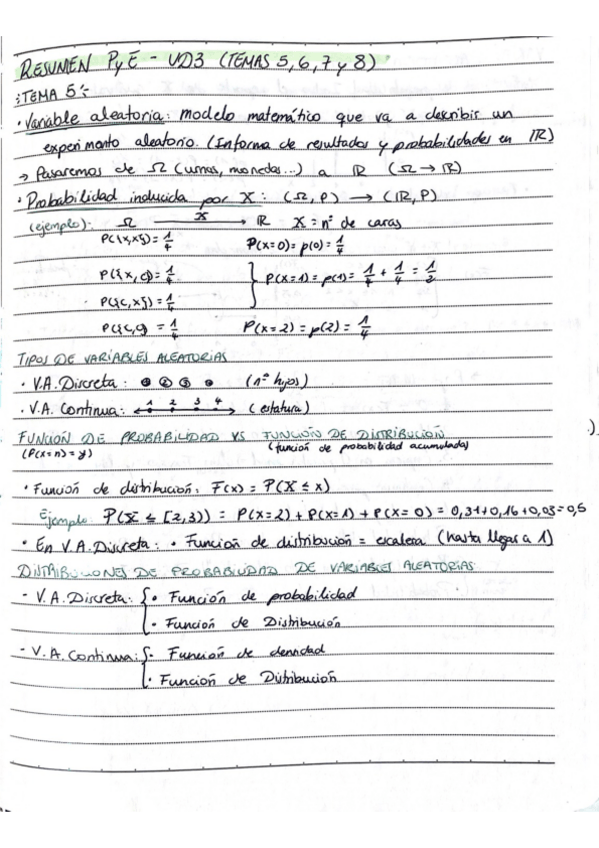 RESUMEN PyE - UD3 (TEMAS 5, 6, 7 y 8)
:TEMA 5:
· Variable aleatoria: modelo matemático que va a describir un
experimento aleatorio. (Informa de resultados y probabilidades en ℝ)
→ Pasaremos de Ω (urnas, monedas...) a ℝ (Ω → ℝ)
· Probabilidad inducida por X: (Ω, P) → (ℝ, P)
(ejemplo): Ω X→ ℝ X = nº de caras
P({x,x}) = 1/4 P(x=0) = p(0) = 1/4
P({x,c}) = 1/4 } P(x=1) = p(1) = 1/4 + 1/4 = 1/2
P({c,x}) = 1/4
P({c,c}) = 1/4 P(x=2) = p(2) = 1/4
TIPOS DE VARIABLES ALEATORIAS
· V.A. Discreta: (nº hijos)
· V.A. Continua: 1 2 3 4 (estatura)
FUNCIÓN DE PROBABILIDAD VS FUNCIÓN DE DISTRIBUCIÓN
(P(x=n) = y) (función de probabilidad acumulada)
· Función de distribución: F(x) = P(X ≤ x)
Ejemplo: P(X ≤ [2,3)) = P(x=2) + P(x=1) + P(x=0) = 0,31+0,16+0,03=0,5
· En V.A. Discreta: · Función de distribución = escalera (hasta llegar a 1)
DISTRIBUCIONES DE PROBABILIDAD DE VARIABLES ALEATORIAS
- V.A. Discreta: { · Función de probabilidad
· Función de Distribución
- V.A. Continua: { · Función de densidad
· Función de Distribución